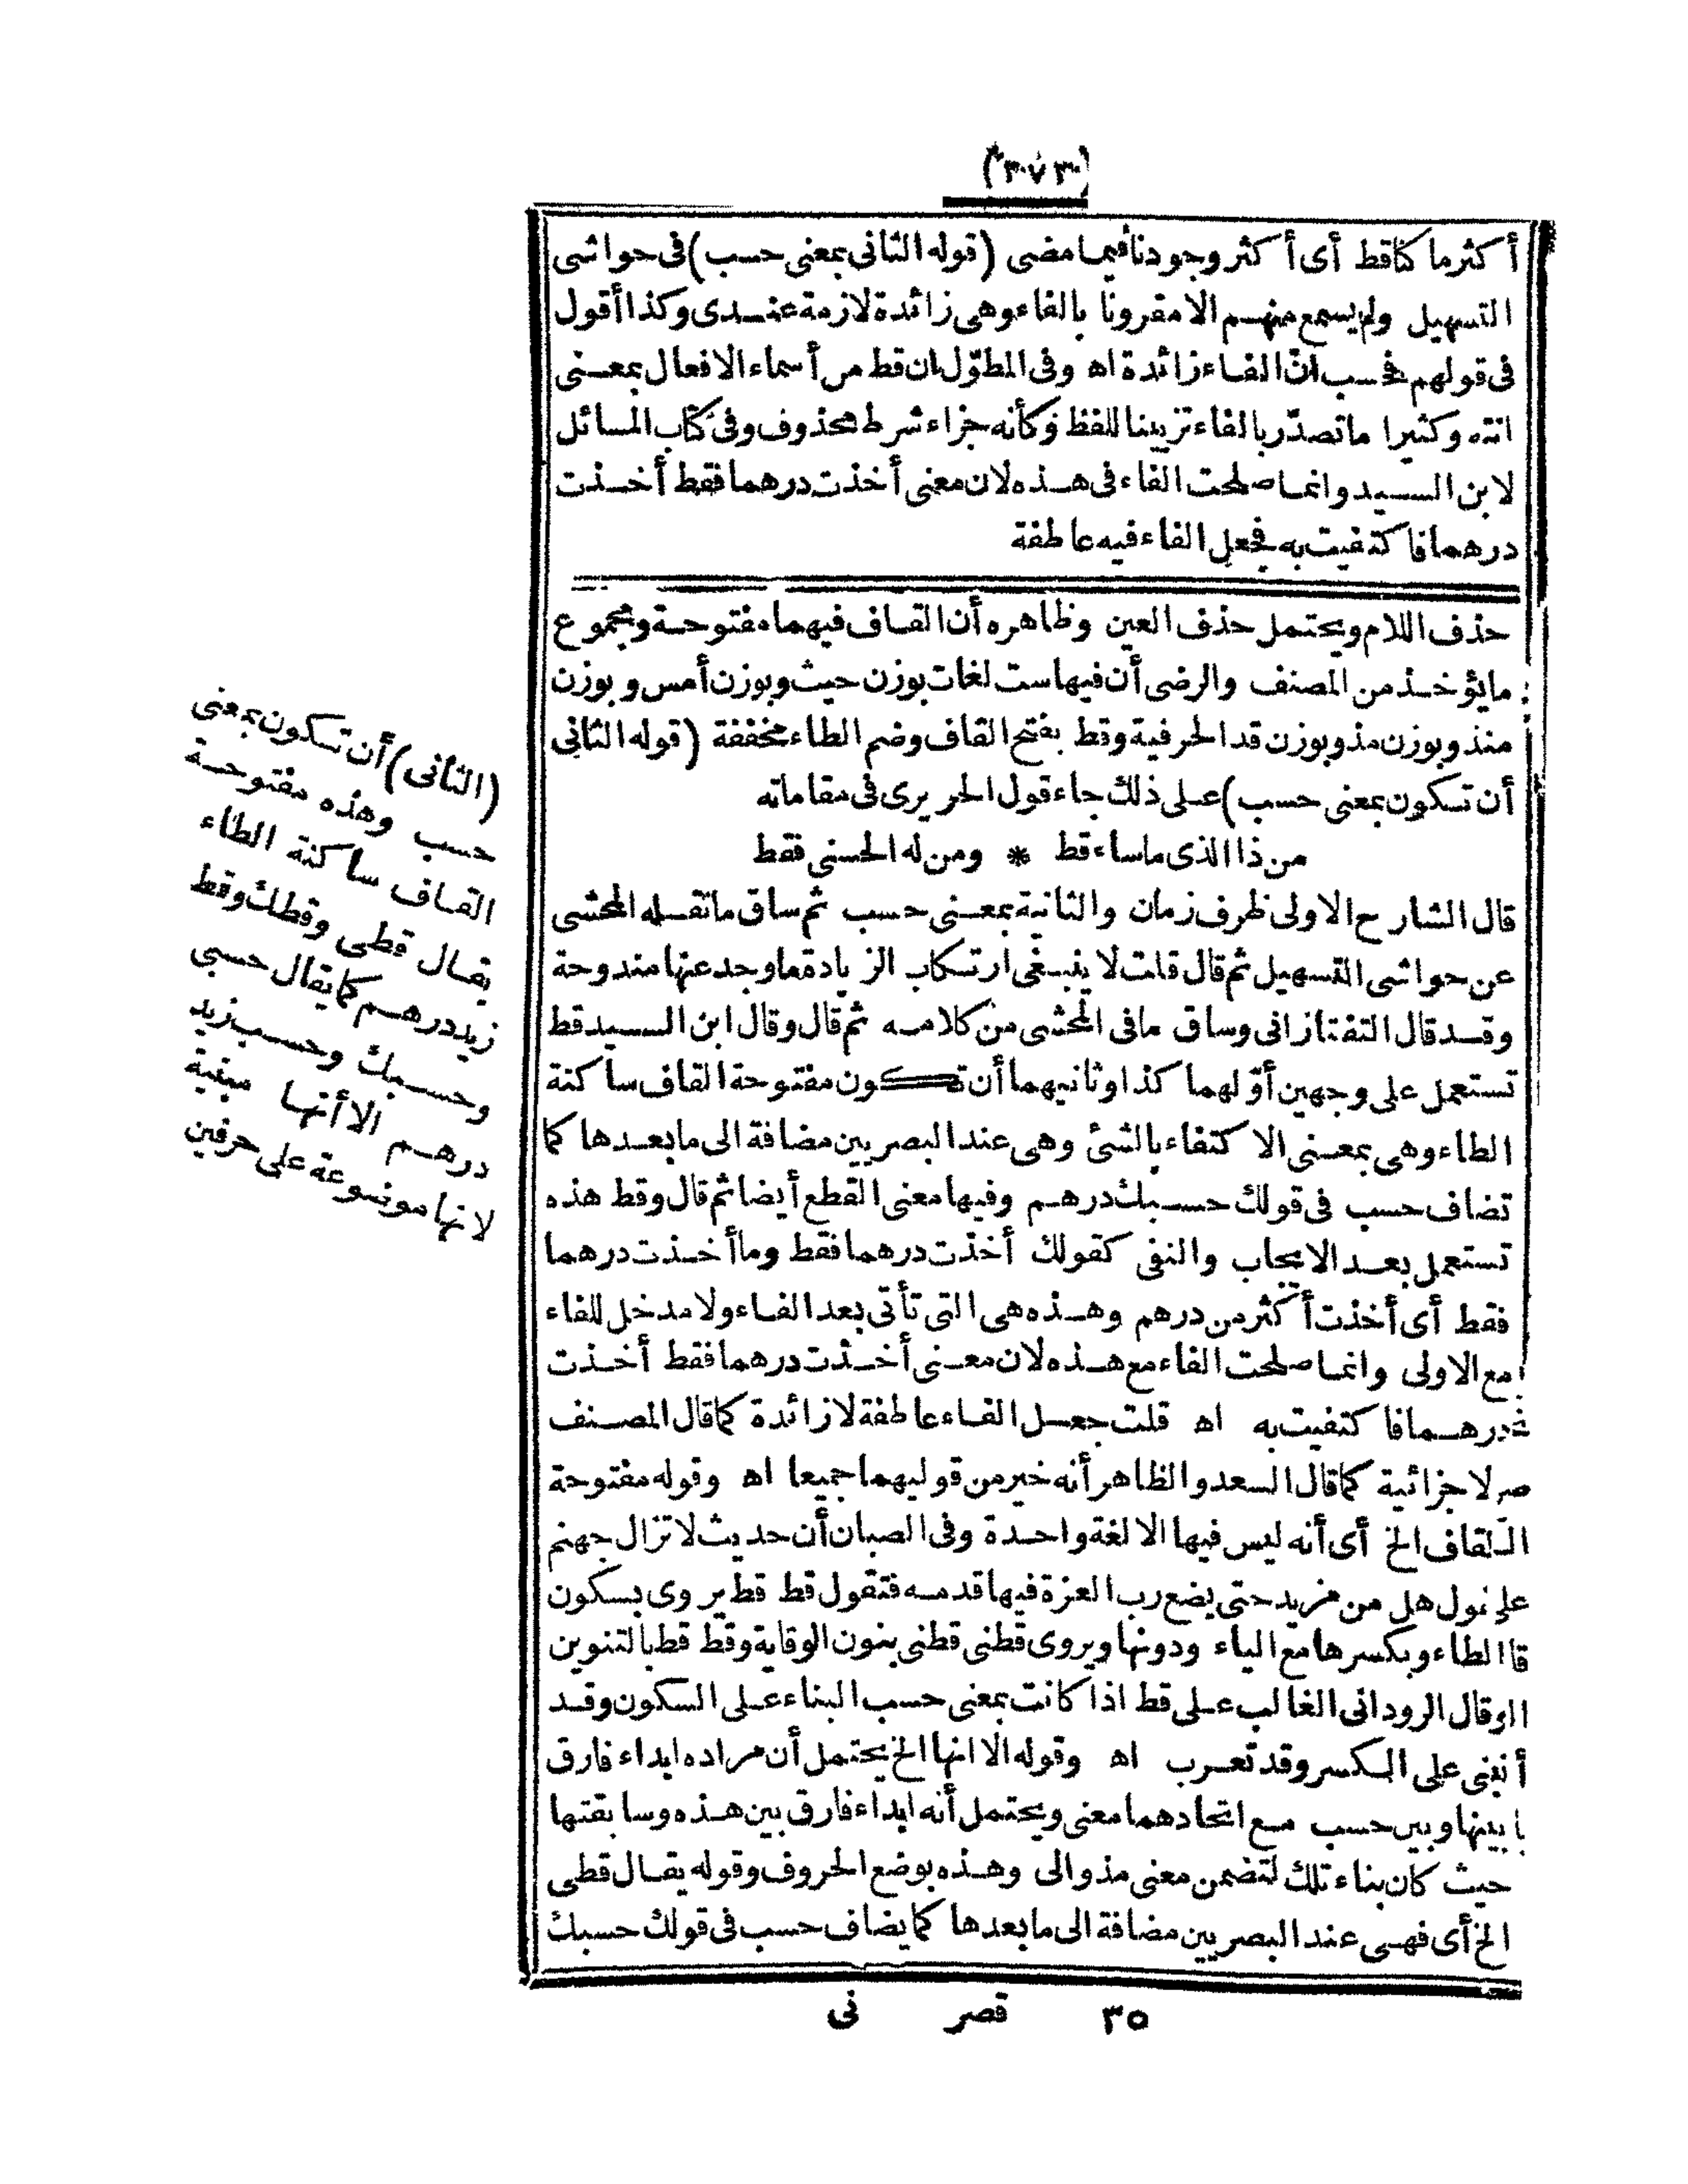 (٢٧٣)
أكثر ما كنا قط أى أكثر وجودنا فيما مضى (قوله الثانى بمعنى حسب) فى حواشى
التسهيل ولم يسمع منهم الا مقرونا بالفاء وهى زائدة لازمة عندى وكذا أقول
فى قولهم فحسب انّ الفاء زائدة اه وفى المطوّل ان قط من أسماء الافعال بمعنى
انته وكثيرا ما تصدّر بالفاء تزيينا للفظ وكأنه جزاء شرط محذوف وفى كتاب المسائل
لابن السيد وانما صلحت الفاء فى هذه لان معنى أخذت درهما فقط أخذت
درهما فاكتفيت به فجعل الفاء فيه عاطفة
حذف اللام ويحتمل حذف العين وظاهره أن القاف فيهما مفتوحة ومجموع
ما يؤخذ من المصنف والرضى أن فيها ست لغات بوزن حيث وبوزن أمس وبوزن
منذ وبوزن مذ وبوزن قد الحرفية وقط بفتح القاف وضم الطاء مخففة (قوله الثانى
أن تكون بمعنى حسب) على ذلك جاء قول الحريرى فى مقاماته
من ذا الذى ما ساء قط * ومن له الحسنى فقط
قال الشارح الاولى ظرف زمان والثانية بمعنى حسب ثم ساق ما نقله المحشى
عن حواشى التسهيل ثم قال قلت لا ينبغى ارتكاب الزيادة ما وجد عنها مندوحة
وقد قال التفتازانى وساق مافى المحشى من كلامه ثم قال وقال ابن السيد قط
تستعمل على وجهين أوّلهما كذا وثانيهما أن تكون مفتوحة القاف ساكنة
الطاء وهى بمعنى الاكتفاء بالشئ وهى عند البصريين مضافة الى ما بعدها كما
تضاف حسب فى قولك حسبك درهم وفيها معنى القطع أيضا ثم قال وقط هذه
تستعمل بعد الايجاب والنفى كقولك أخذت درهما فقط وما أخذت درهما
فقط أى أخذت أكثر من درهم وهذه هى التى تأتى بعد الفاء ولا مدخل للفاء
مع الاولى وانما صلحت الفاء مع هذه لان معنى أخذت درهما فقط أخذت
درهما فاكتفيت به اه قلت جعل الفاء عاطفة لا زائدة كما قال المصنف
لا جزائية كما قال السعد والظاهر أنه خير من قوليهما جميعا اه وقوله مفتوحة
القاف الخ أى أنه ليس فيها الا لغة واحدة وفى الصبان أن حديث لا تزال جهنم
هل من مزيد حتى يضع رب العزة فيها قدمه فتقول قط قط يروى بسكون
الطاء وبكسرها مع الياء ودونها ويروى قطنى قطنى بنون الوقاية وقط قط بالتنوين
وقال الرودانى الغالب على قط اذا كانت بمعنى حسب البناء على السكون وقد
على الكسر وقد تعرب اه وقوله الا انها الخ يحتمل أن مراده ابداء فارق
بينها وبين حسب مع اتحادهما معنى ويحتمل أنه ابداء فارق بين هذه وسابقتها
حيث كان بناء تلك لتضمن معنى مذ والى وهذه بوضع الحروف وقوله يقال قطى
الخ أى فهى عند البصريين مضافة الى ما بعدها كما يضاف حسب فى قولك حسبك
(الثانى) أن تكون بمعنى
حسب وهذه مفتوحة
القاف ساكنة الطاء
يقال قطى وقطك وقط
زيد درهم كما يقال حسبى
وحسبك وحسب زيد
درهم الا أنها مبنية
لانها موضوعة على حرفين
٣٥ قصر نى